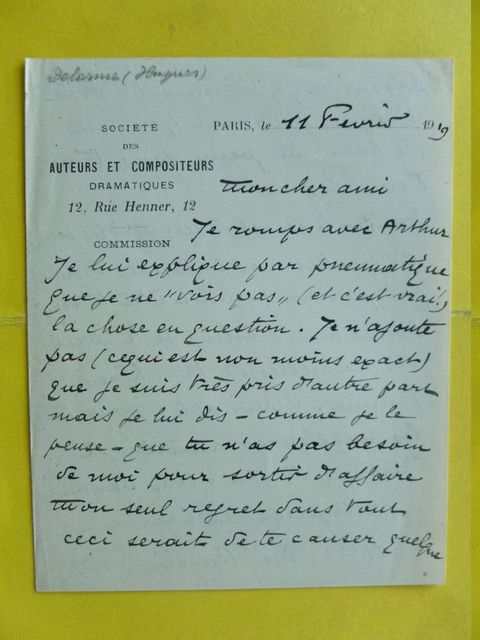 Delorme (Hugues)
SOCIETE
DES
AUTEURS ET COMPOSITEURS
DRAMATIQUES
12, Rue Henner, 12
COMMISSION
PARIS, le 11 Fevrier 1919
Mon cher ami
Je romps avec Arthur
Je lui explique par pneumatique
que je ne "vois pas" (et c'est vrai!)
la chose en question. Je n'ajoute
pas (ce qui est non moins exact)
que je suis très pris d'autre part
mais je lui dis - comme je le
pense - que tu n'as pas besoin
de moi pour sortir d'affaire
Mon seul regret dans tout
ceci serait de te causer quelque